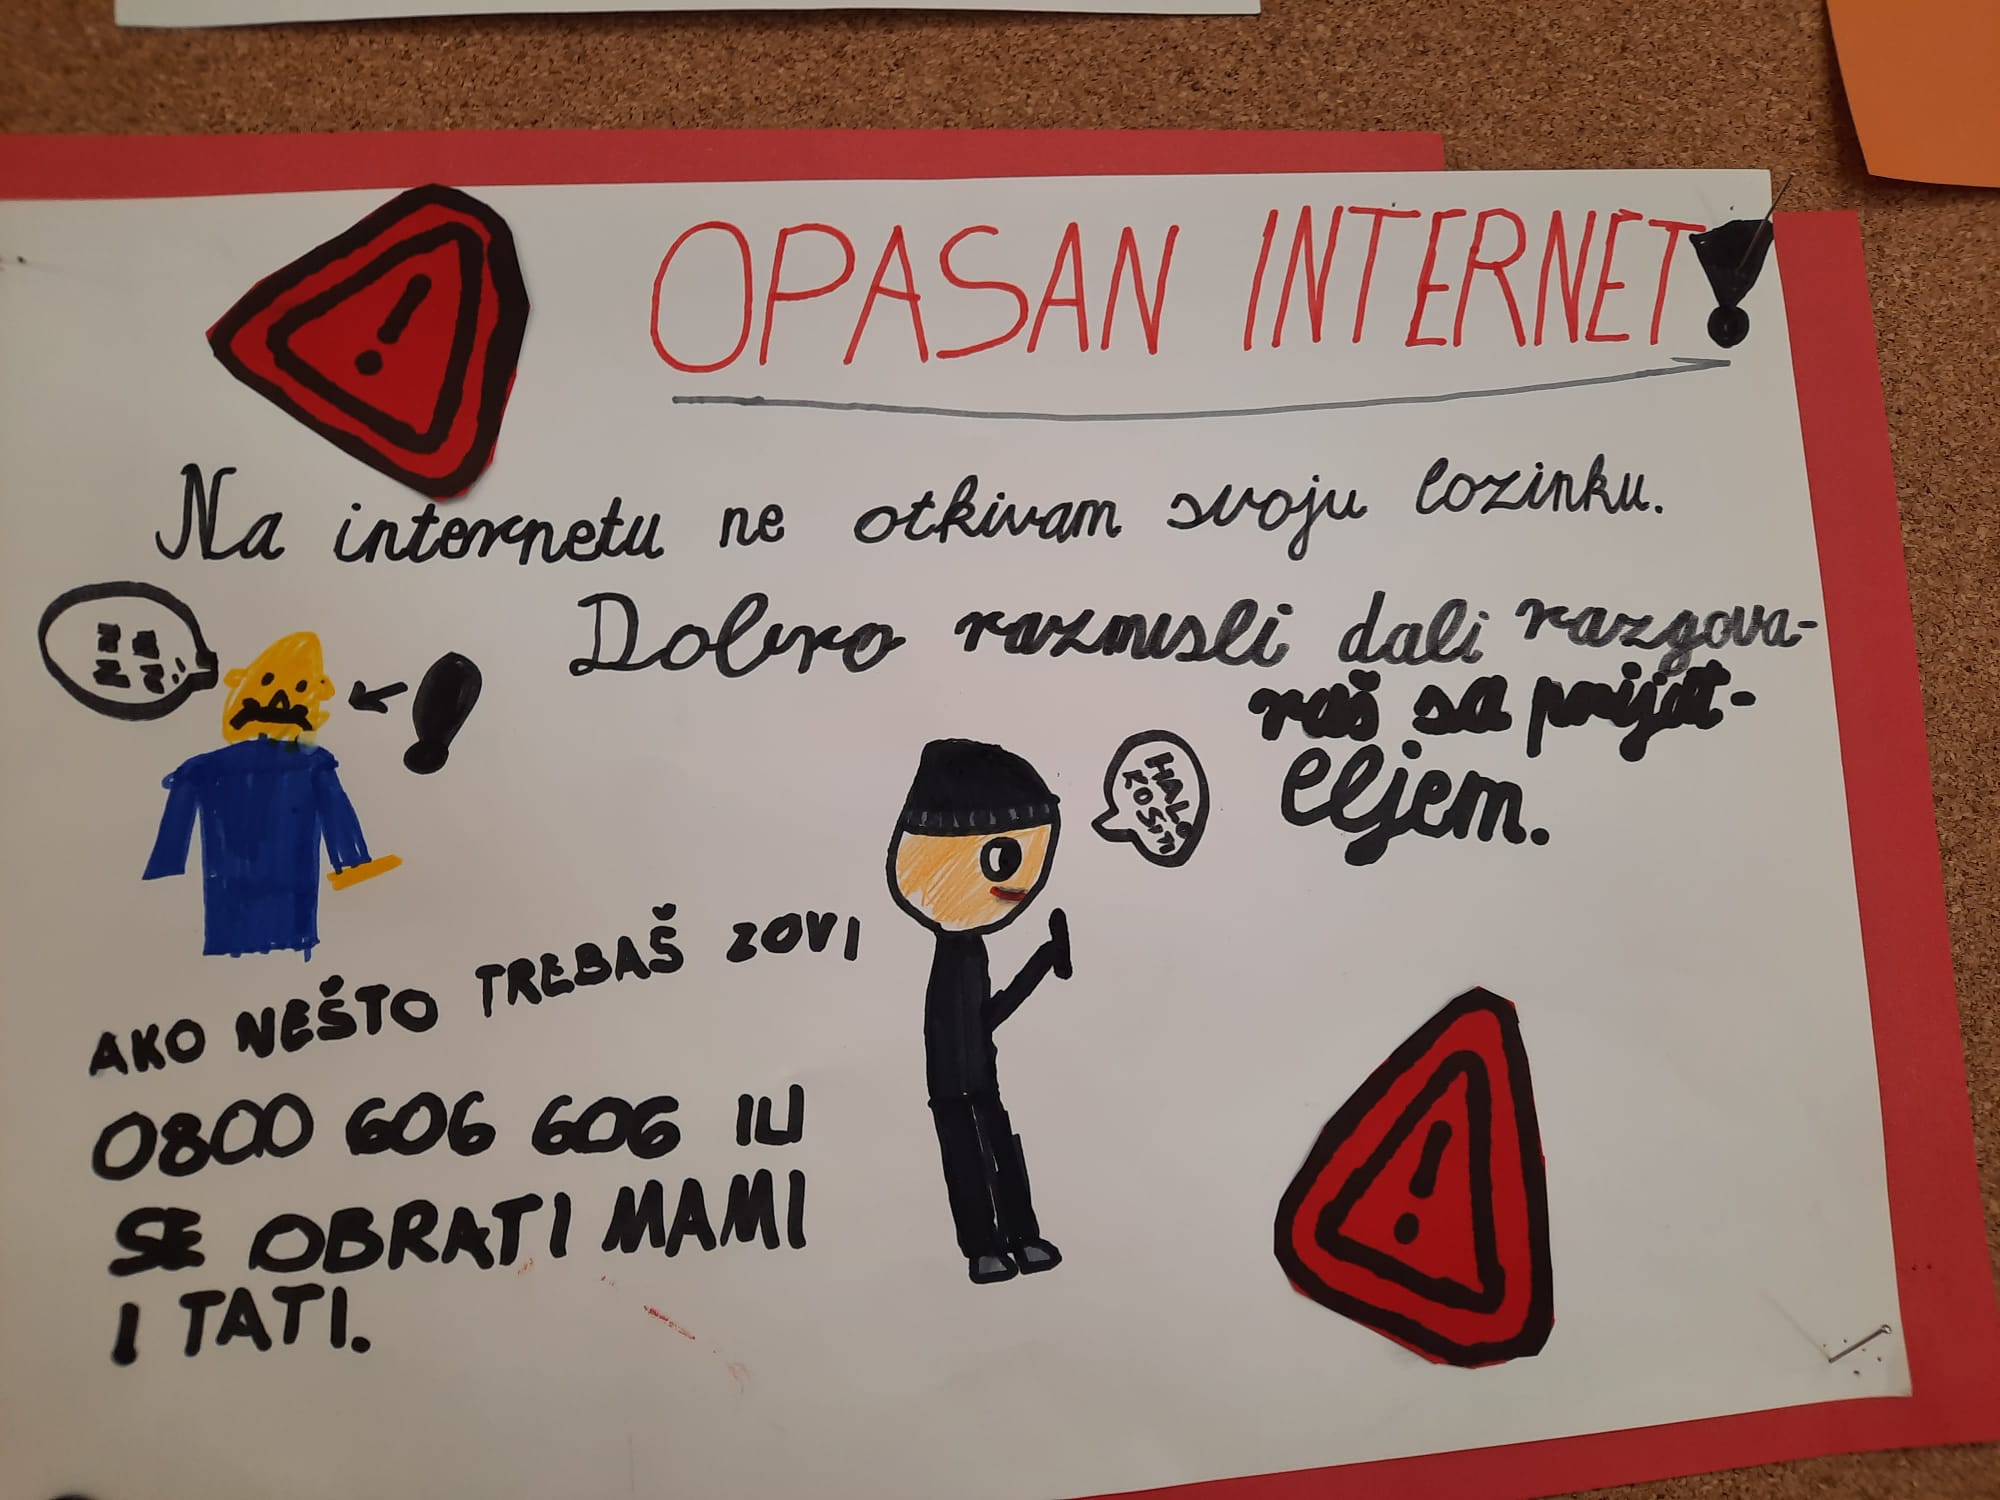 OPASAN INTERNET!
Na internetu ne otkivam svoju lozinku.
Dobro razmisli dali razgova-
raš sa prijat-
eljem.
HALO
AKO NEŠTO TREBAŠ ZOVI
0800 606 606 ILI
SE OBRATI MAMI
I TATI.